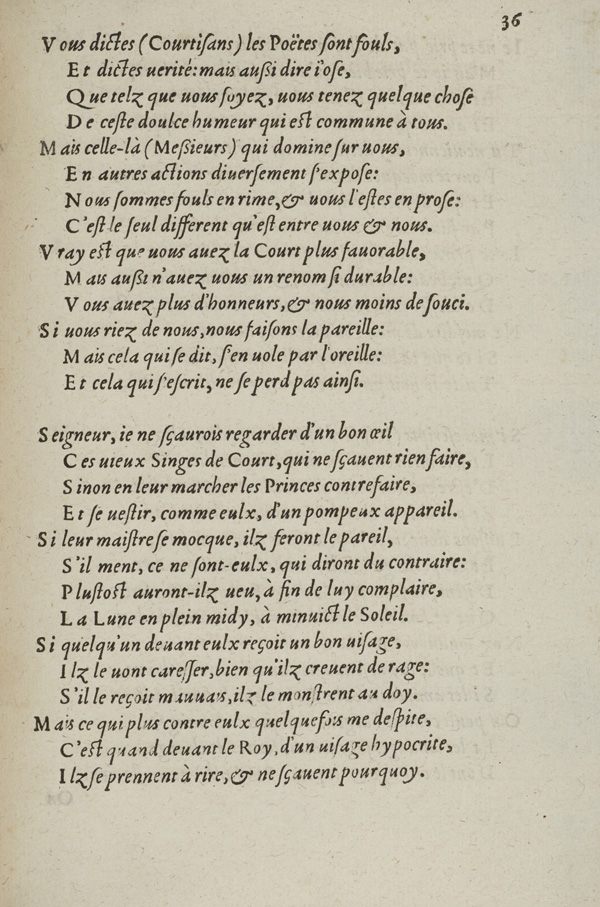 36
Vous dictes (Courtiſans) les Poëtes ſont fouls,
Et dictes uerité: mais auſsi dire i'oſe,
Que telz que uous ſoyez, uous tenez quelque choſe
De ceſte doulce humeur qui eſt commune à tous.
Mais celle-là (Meſsieurs) qui domine ſur uous,
En autres actions diuerſement ſ'expoſe:
Nous ſommes fouls en rime, & uous l'eſtes en proſe:
C'eſt le ſeul different qu'eſt entre uous & nous.
Vray eſt que uous auez la Court plus fauorable,
Mais auſsi n'auez uous un renom ſi durable:
Vous auez plus d'honneurs, & nous moins de ſouci.
Si uous riez de nous, nous faiſons la pareille:
Mais cela qui ſe dit, ſ'en uole par l'oreille:
Et cela qui ſ'eſcrit, ne ſe perd pas ainſi.
Seigneur, ie ne ſçaurois regarder d'un bon œil
Ces uieux Singes de Court, qui ne ſçauent rien faire,
Sinon en leur marcher les Princes contrefaire,
Et ſe ueſtir, comme eulx, d'un pompeux appareil.
Si leur maiſtre ſe mocque, ilz feront le pareil,
S'il ment, ce ne ſont-eulx, qui diront du contraire:
Pluſtoſt auront-ilz ueu, à fin de luy complaire,
La Lune en plein midy, à minuict le Soleil.
Si quelqu'un deuant eulx reçoit un bon uiſage,
Ilz le uont careſſer, bien qu'ilz creuent de rage:
S'il le reçoit mauuais, ilz le monſtrent au doy.
Mais ce qui plus contre eulx quelquefois me deſpite,
C'eſt quand deuant le Roy, d'un uiſage hypocrite,
Ilz ſe prennent à rire, & ne ſçauent pourquoy.